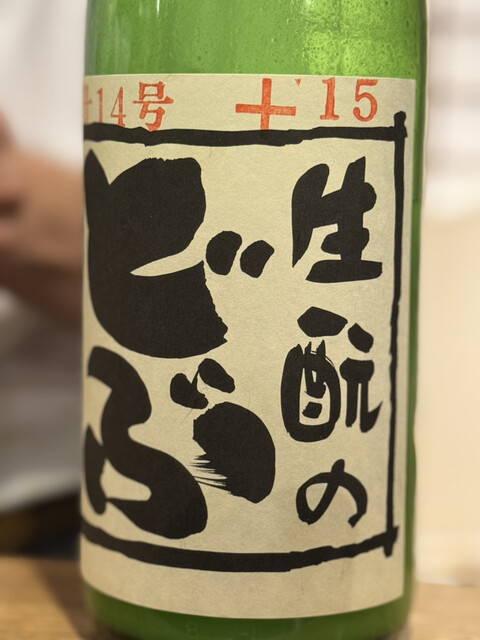 14号 +15
生酛の
どぶ